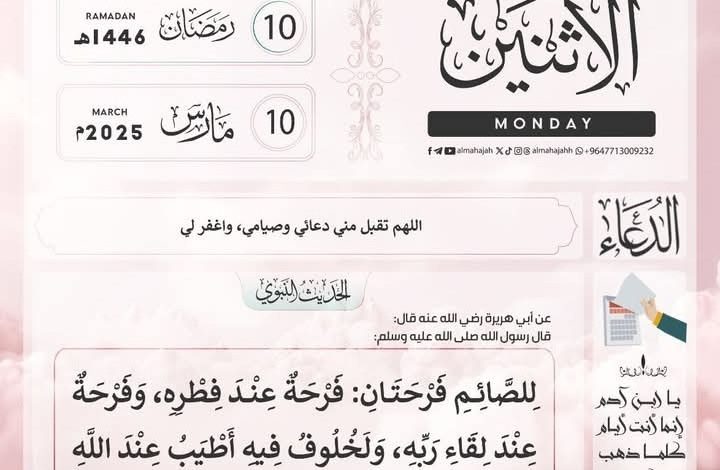 RAMADAN
1446هـ
رمضان
10
الاثنين
MARCH
2025م
مارس
10
MONDAY
almahajah almahajahh +9647713009232
الدعاء
اللهم تقبل مني دعائي وصيامي، واغفر لي
الحديث النبوي
عن أبي هريرة رضي الله عنه قال:
قال رسول الله صلى الله عليه وسلم:
لِلصَّائِمِ فَرْحَتَانِ: فَرْحَةٌ عِنْدَ فِطْرِهِ، وَفَرْحَةٌ
عِنْدَ لِقَاءِ رَبِّهِ، وَلَخُلُوفُ فِيهِ أَطْيَبُ عِنْدَ اللَّهِ
يا ابن آدم
إنما أنت أيام
كلما ذهب